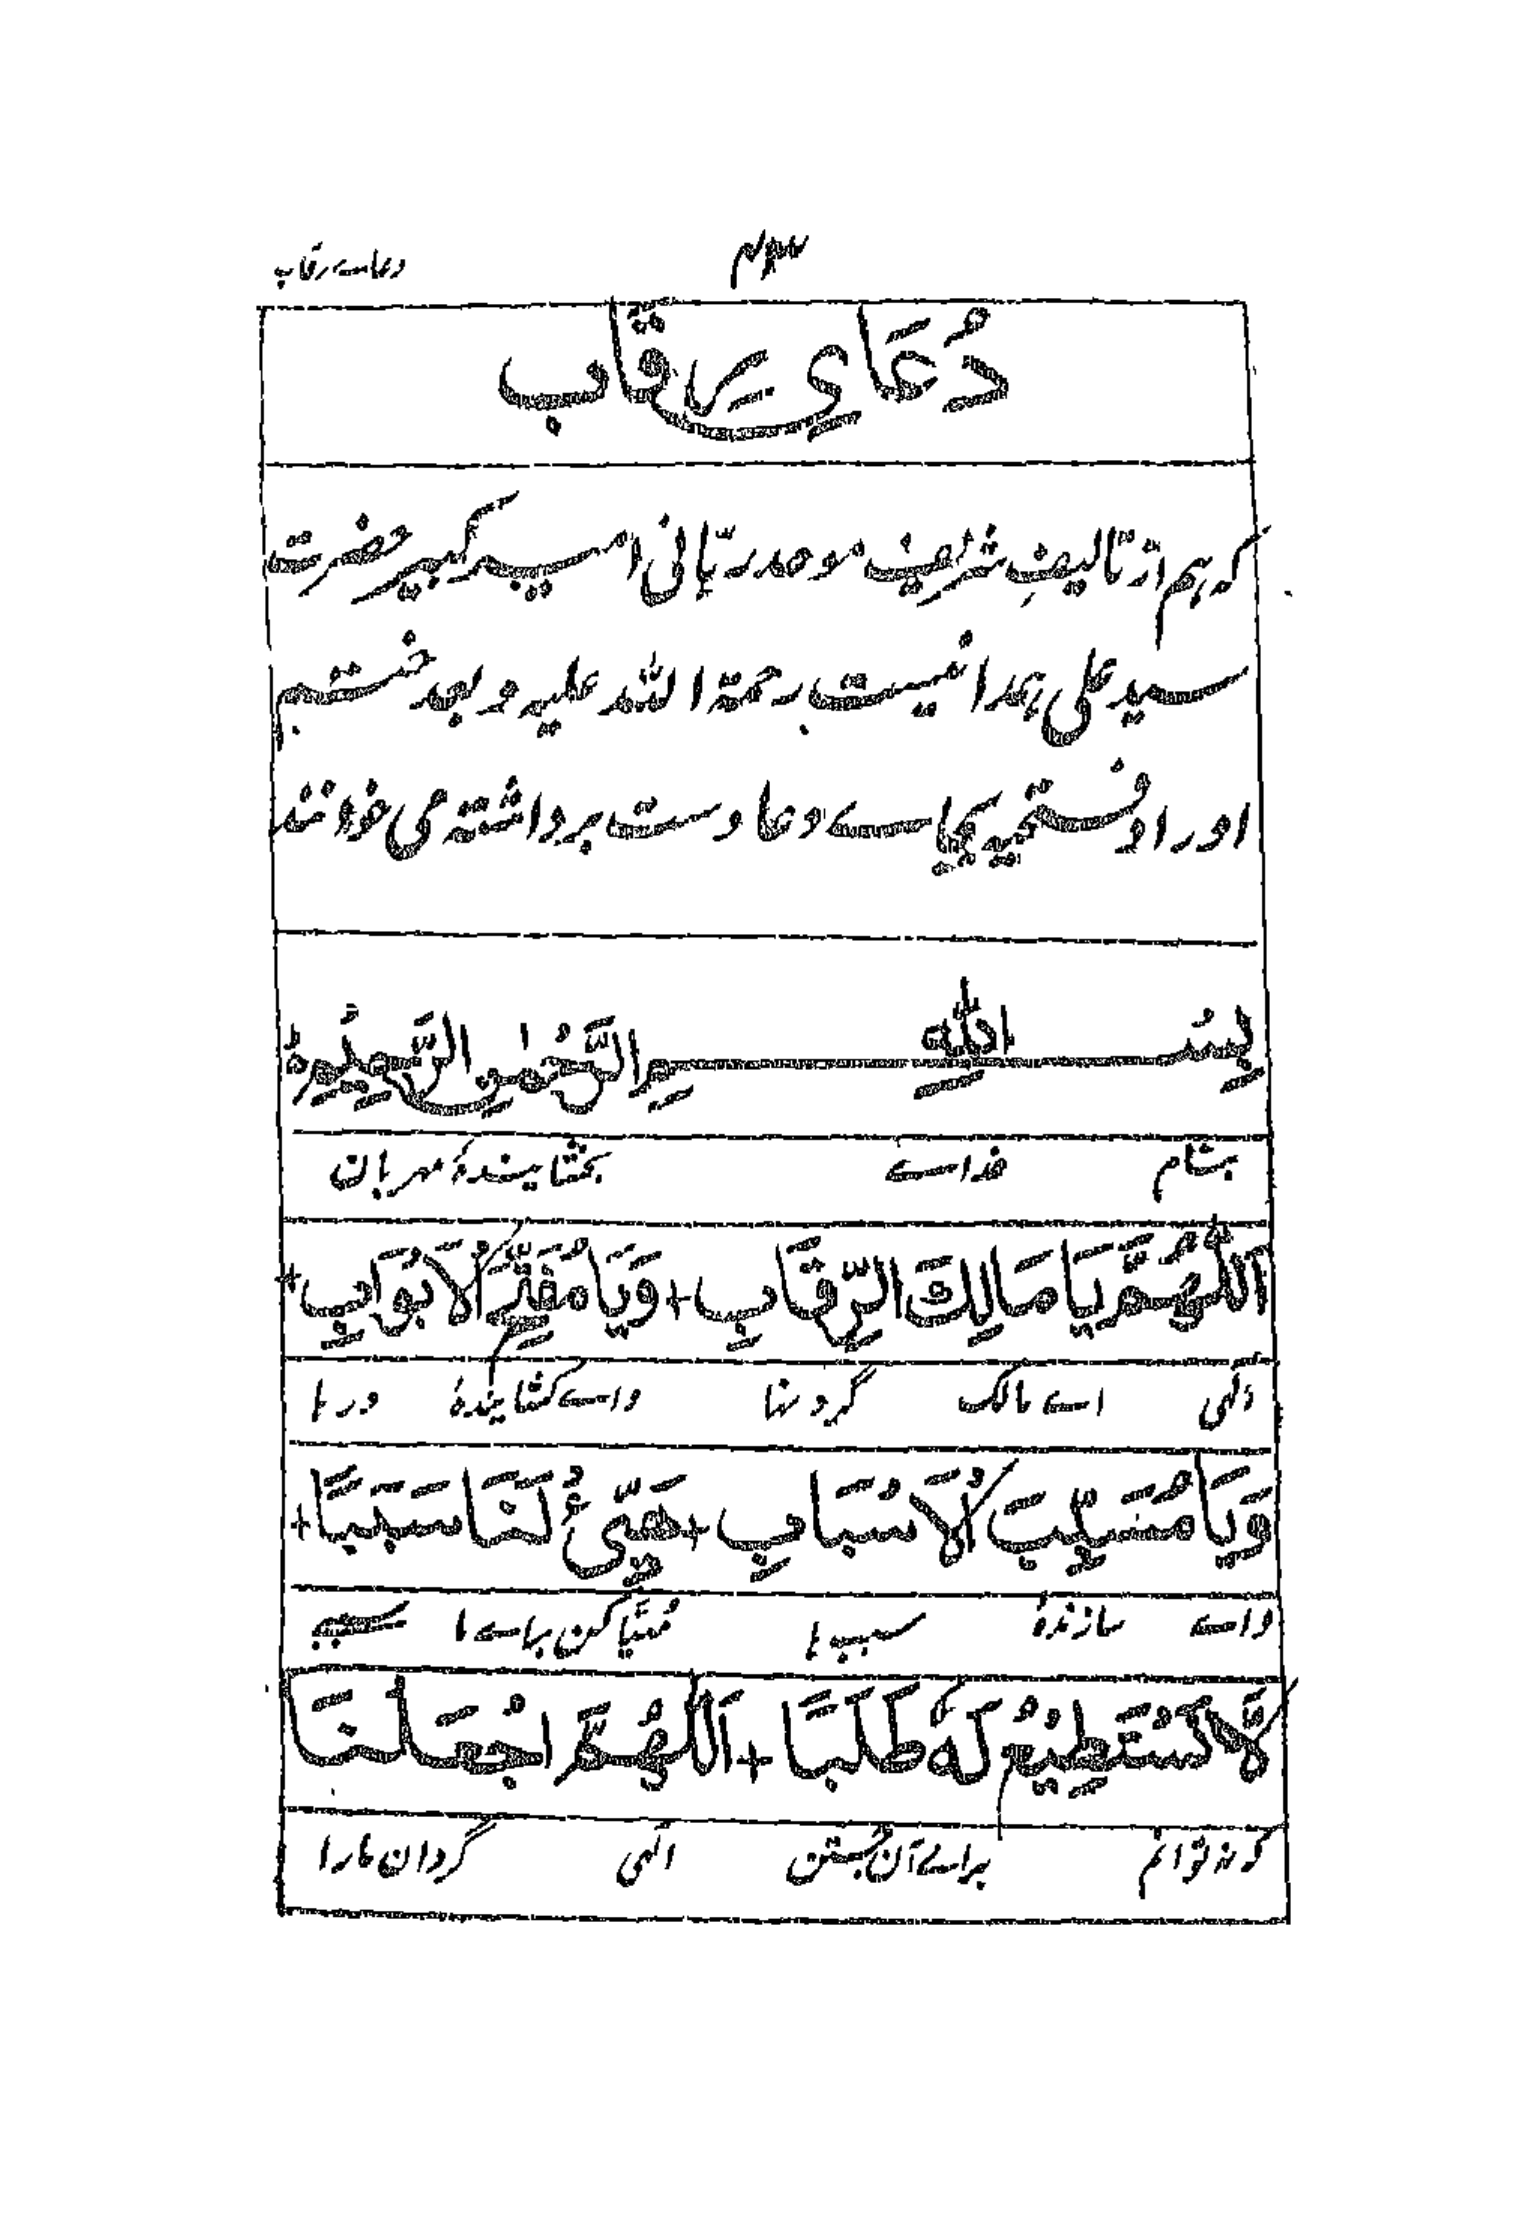 دعاے رقاب
دُعَايِ رِقَاب
کہ ہم از تالیفِ شریف موحد ربّانی امیر کبیر حضرت
سید علی ہمدانیست رحمۃ اللہ علیہ و بعد ختم
اوراد فتحیہ بجاے دعا دست برداشتہ می خوانند
بِسْمِ اللّٰهِ الرَّحْمٰنِ الرَّحِيْمِ
بنام خداے بخشایندۂ مہربان
اَللّٰهُمَّ يَا مَالِكَ الرِّقَابِ + وَيَا مُفَتِّحَ الْاَبْوَابِ +
الٰہی اے مالک گردنہا واے کشایندۂ درہا
وَيَا مُسَبِّبَ الْاَسْبَابِ + هَيِّئْ لَنَا سَبَبًا +
واے سازندۂ سببہا مُہیّا کن براے ما سببے
لَّا نَسْتَطِيْعُ لَهٗ طَلَبًا + اَللّٰهُمَّ اجْعَلْنَا
کہ نتوانم براے آن جُستن الٰہی گردان مارا